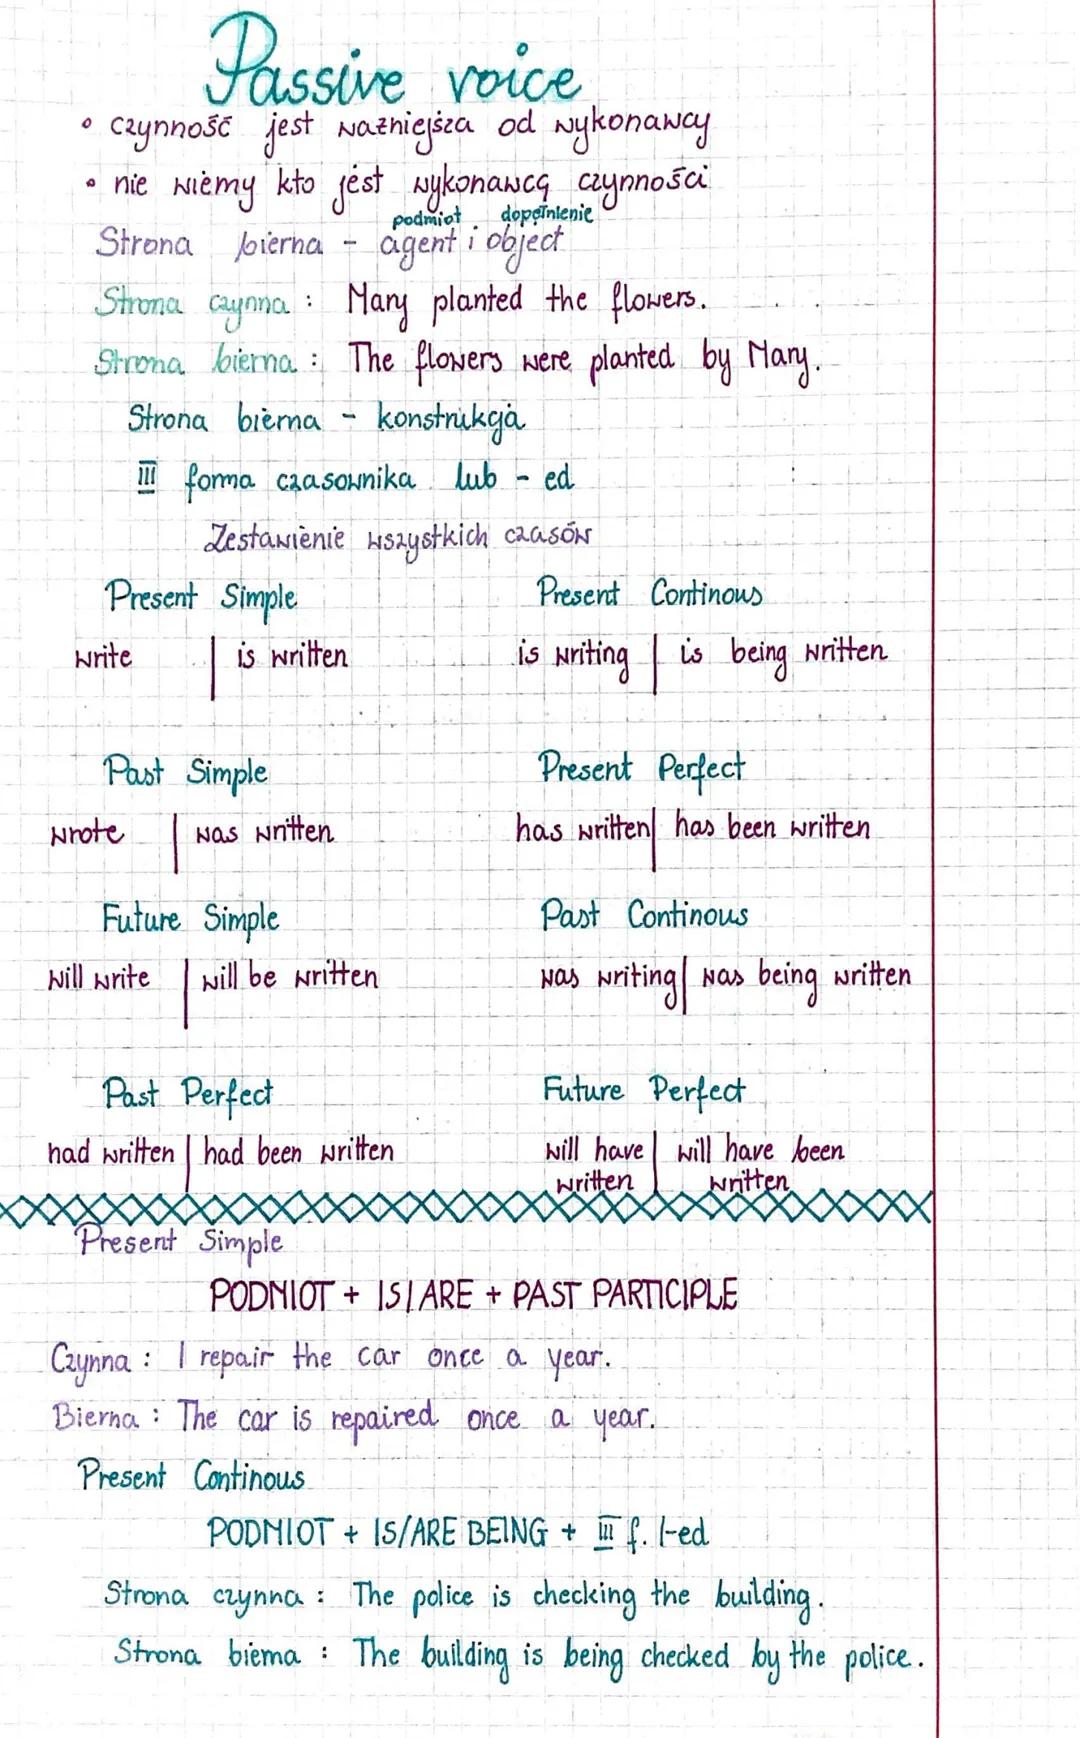 Passive voice
• czynność jest ważniejsza od wykonawcy
• nie wiemy kto jest wykonawcą czynności
podmiot dopełnienie
Strona bierna - agent i object
Strona czynna : Mary planted the flowers.
Strona bierna : The flowers were planted by Mary.
Strona bierna - konstrukcja
III forma czasownika lub - ed
Zestawienie wszystkich czasów
Present Simple Present Continous
write | is written is writing | is being written
Past Simple Present Perfect
wrote | was written has written | has been written
Future Simple Past Continous
will write | will be written was writing | was being written
Past Perfect Future Perfect
had written | had been written will have | will have been
written | written
Present Simple
PODMIOT + IS/ARE + PAST PARTICIPLE
Czynna : I repair the car once a year.
Bierna : The car is repaired once a year.
Present Continous
PODMIOT + IS/ARE BEING + III f. /-ed
Strona czynna : The police is checking the building.
Strona bierna : The building is being checked by the police.